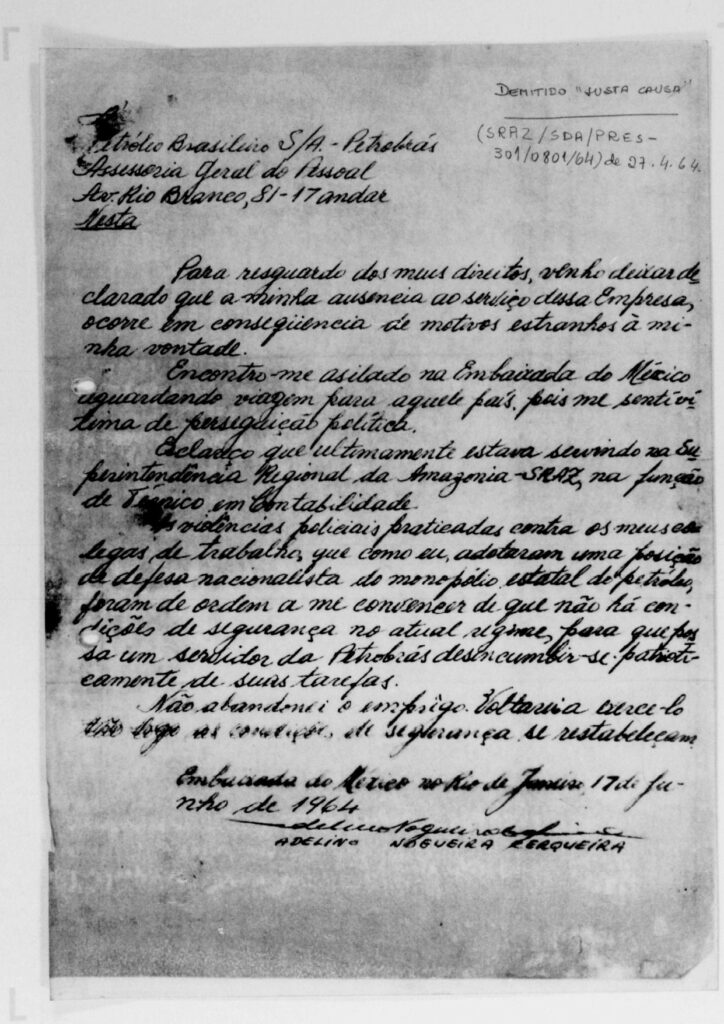 DEMITIDO "JUSTA CAUSA"
(SRAZ/SDA/PRES-
301/0801/64) de 27.4.64.
À
Petróleo Brasileiro S/A.- Petrobrás
Assessoria Geral do Pessoal
Av. Rio Branco, 81-17 andar
Nesta
Para resguardo dos meus direitos, venho deixar de-
clarado que a minha ausencia ao serviço dessa Empresa,
ocorre em conseqüencia de motivos estranhos à mi-
nha vontade.
Encontro-me asilado na Embaixada do México
aguardando viagem para aquele país, pois me senti ví-
tima de perseguição política.
Esclareço que ultimamente estava servindo na Su-
perintendência Regional da Amazonia-SRAZ, na função
de Técnico em Contabilidade.
As violências policiais praticadas contra os meus co-
legas de trabalho, que como eu, adotaram uma posição
de defesa nacionalista do monopólio estatal do petróleo,
foram de ordem a me convencer de que não há con-
dições de segurança no atual regime, para que pos-
sa um servidor da Petrobrás desincumbir-se patrioti-
camente de suas tarefas.
Não abandonei o emprêgo. Voltarei a exerce-lo
tão logo as condições de segurança se restabeleçam
Embaixada do México no Rio de Janeiro, 17 de Ju-
nho de 1964
Adelino Nogueira Cerqueira
ADELINO NOGUEIRA CERQUEIRA